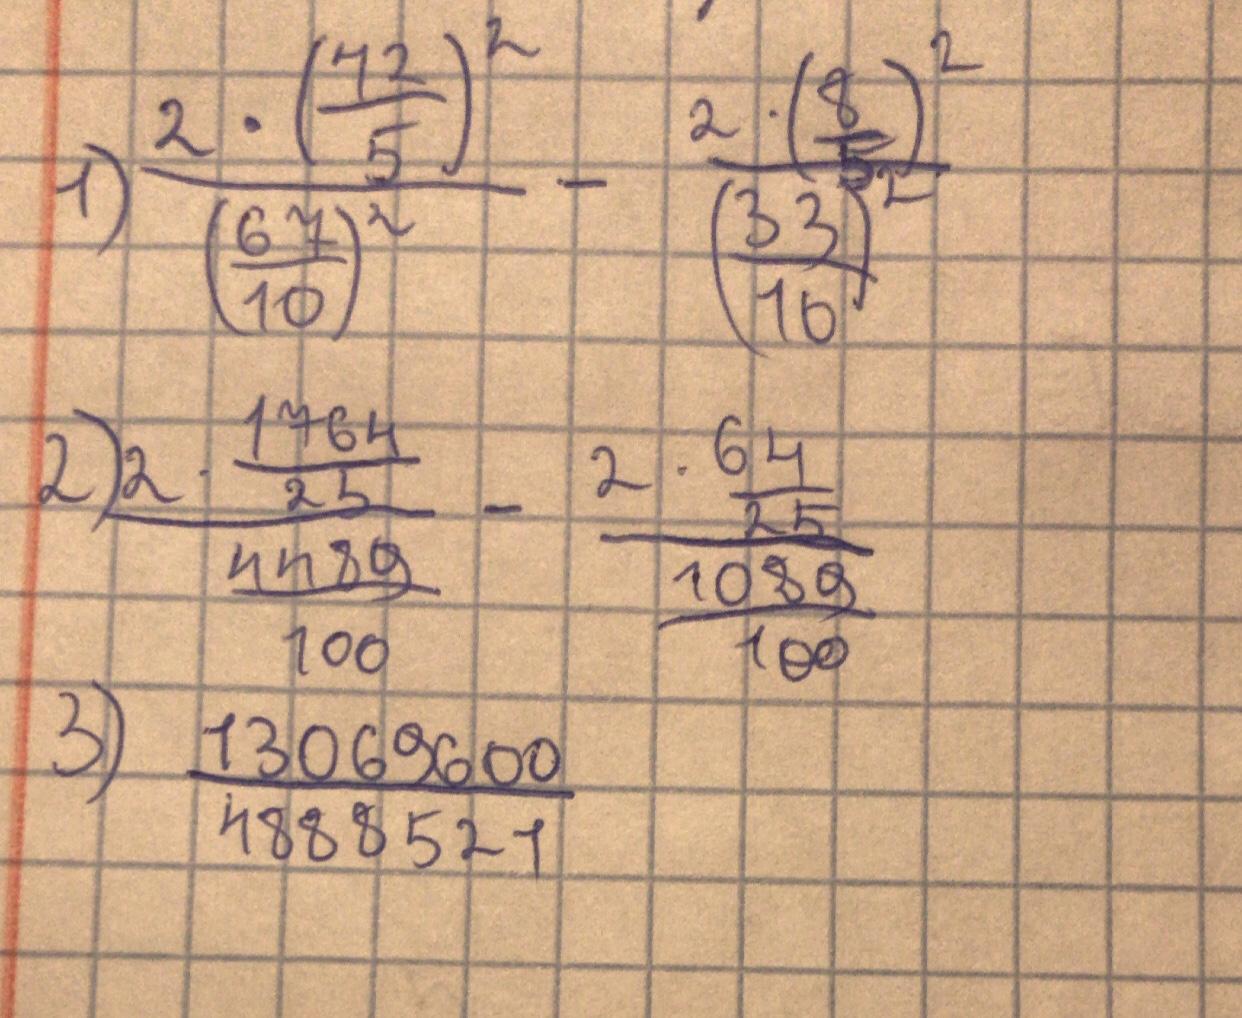 1) 2 · (42/5)² / (67/10)² - 2 · (8/5)² / (33/10)²
2) 2 · 1764/25 / 4489/100 - 2 · 64/25 / 1089/100
3) 13069600/4888521